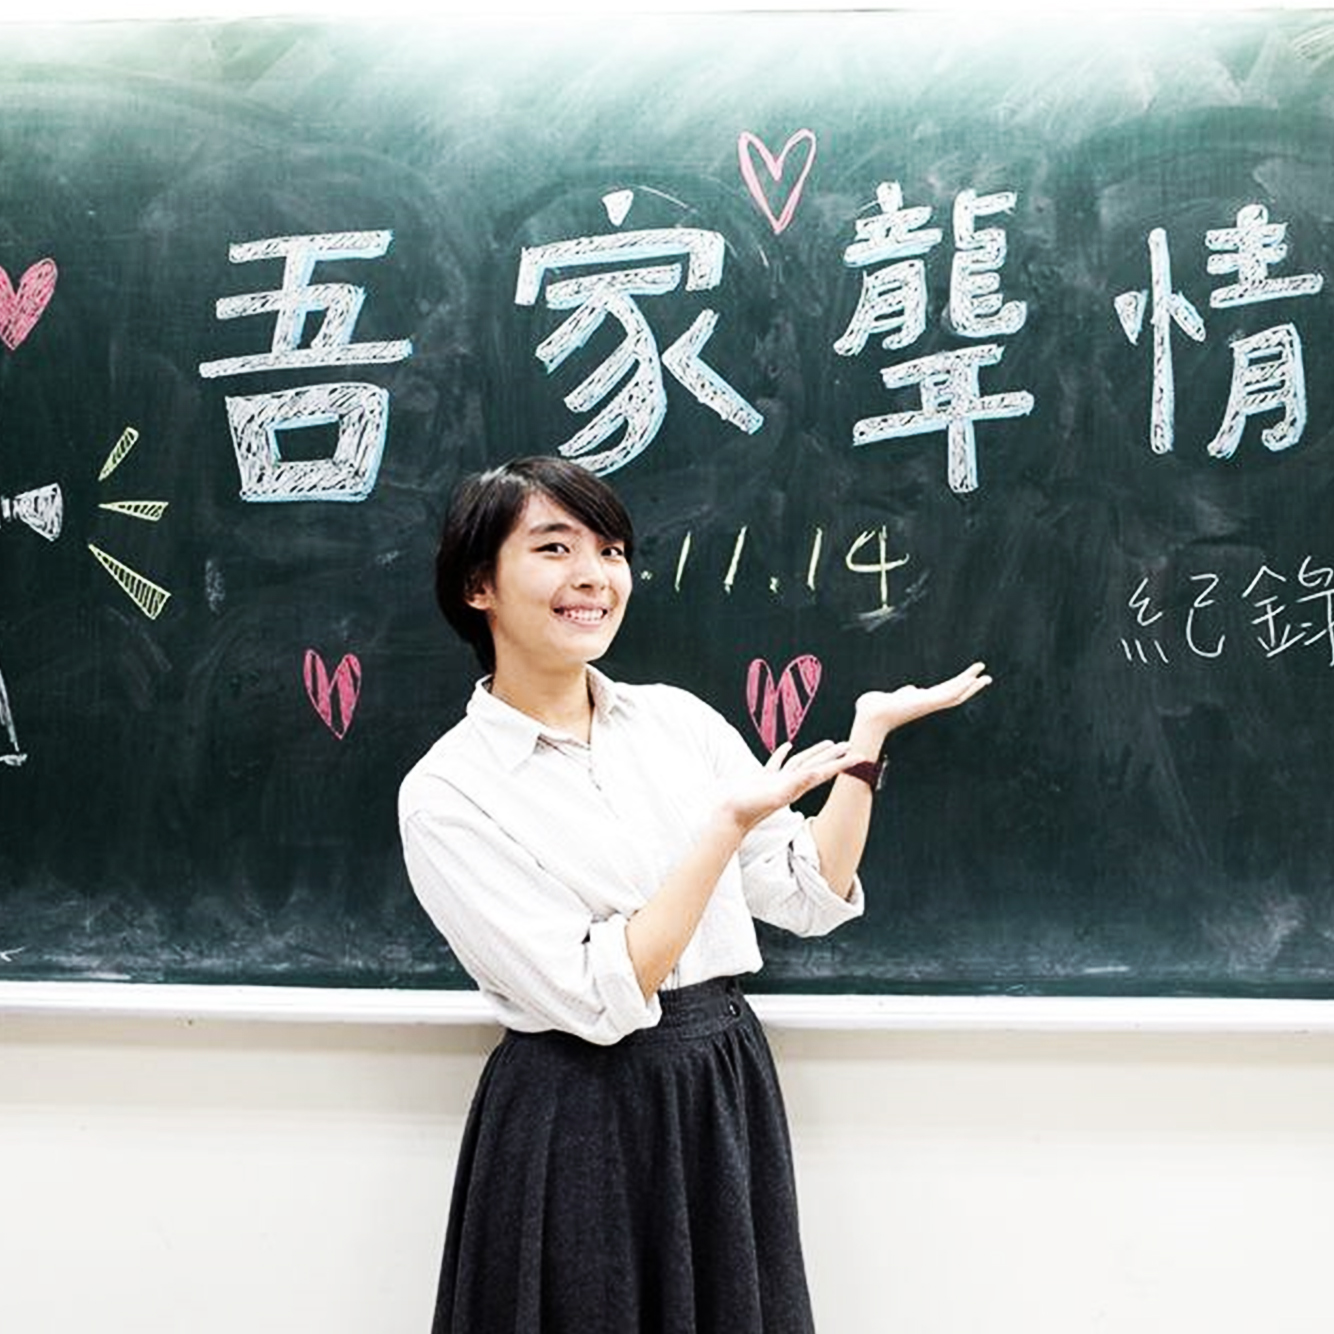 吾家聾情
.11.14
紀錄